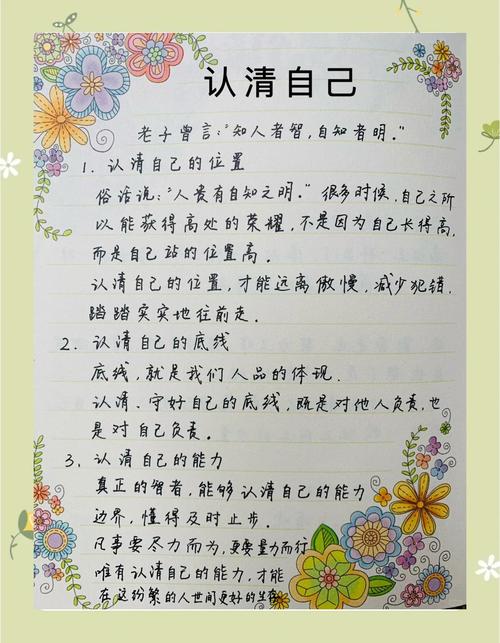 认清自己
老子曾言：“知人者智，自知者明。”
1. 认清自己的位置
俗话说：“人贵有自知之明。”很多时候，自己之所
以能获得高处的荣耀，不是因为自己长得高，
而是自己站的位置高。
认清自己的位置，才能远离傲慢，减少犯错，
踏踏实实地往前走．
2. 认清自己的底线
底线，就是我们人品的体现．
认清、守好自己的底线，既是对他人负责，也
是对自己负责。
3. 认清自己的能力
真正的智者，能够认清自己的能力
边界，懂得及时止步．
凡事要尽力而为，更要量力而行
唯有认清自己的能力，才能
在这纷繁的人世间更好的生存